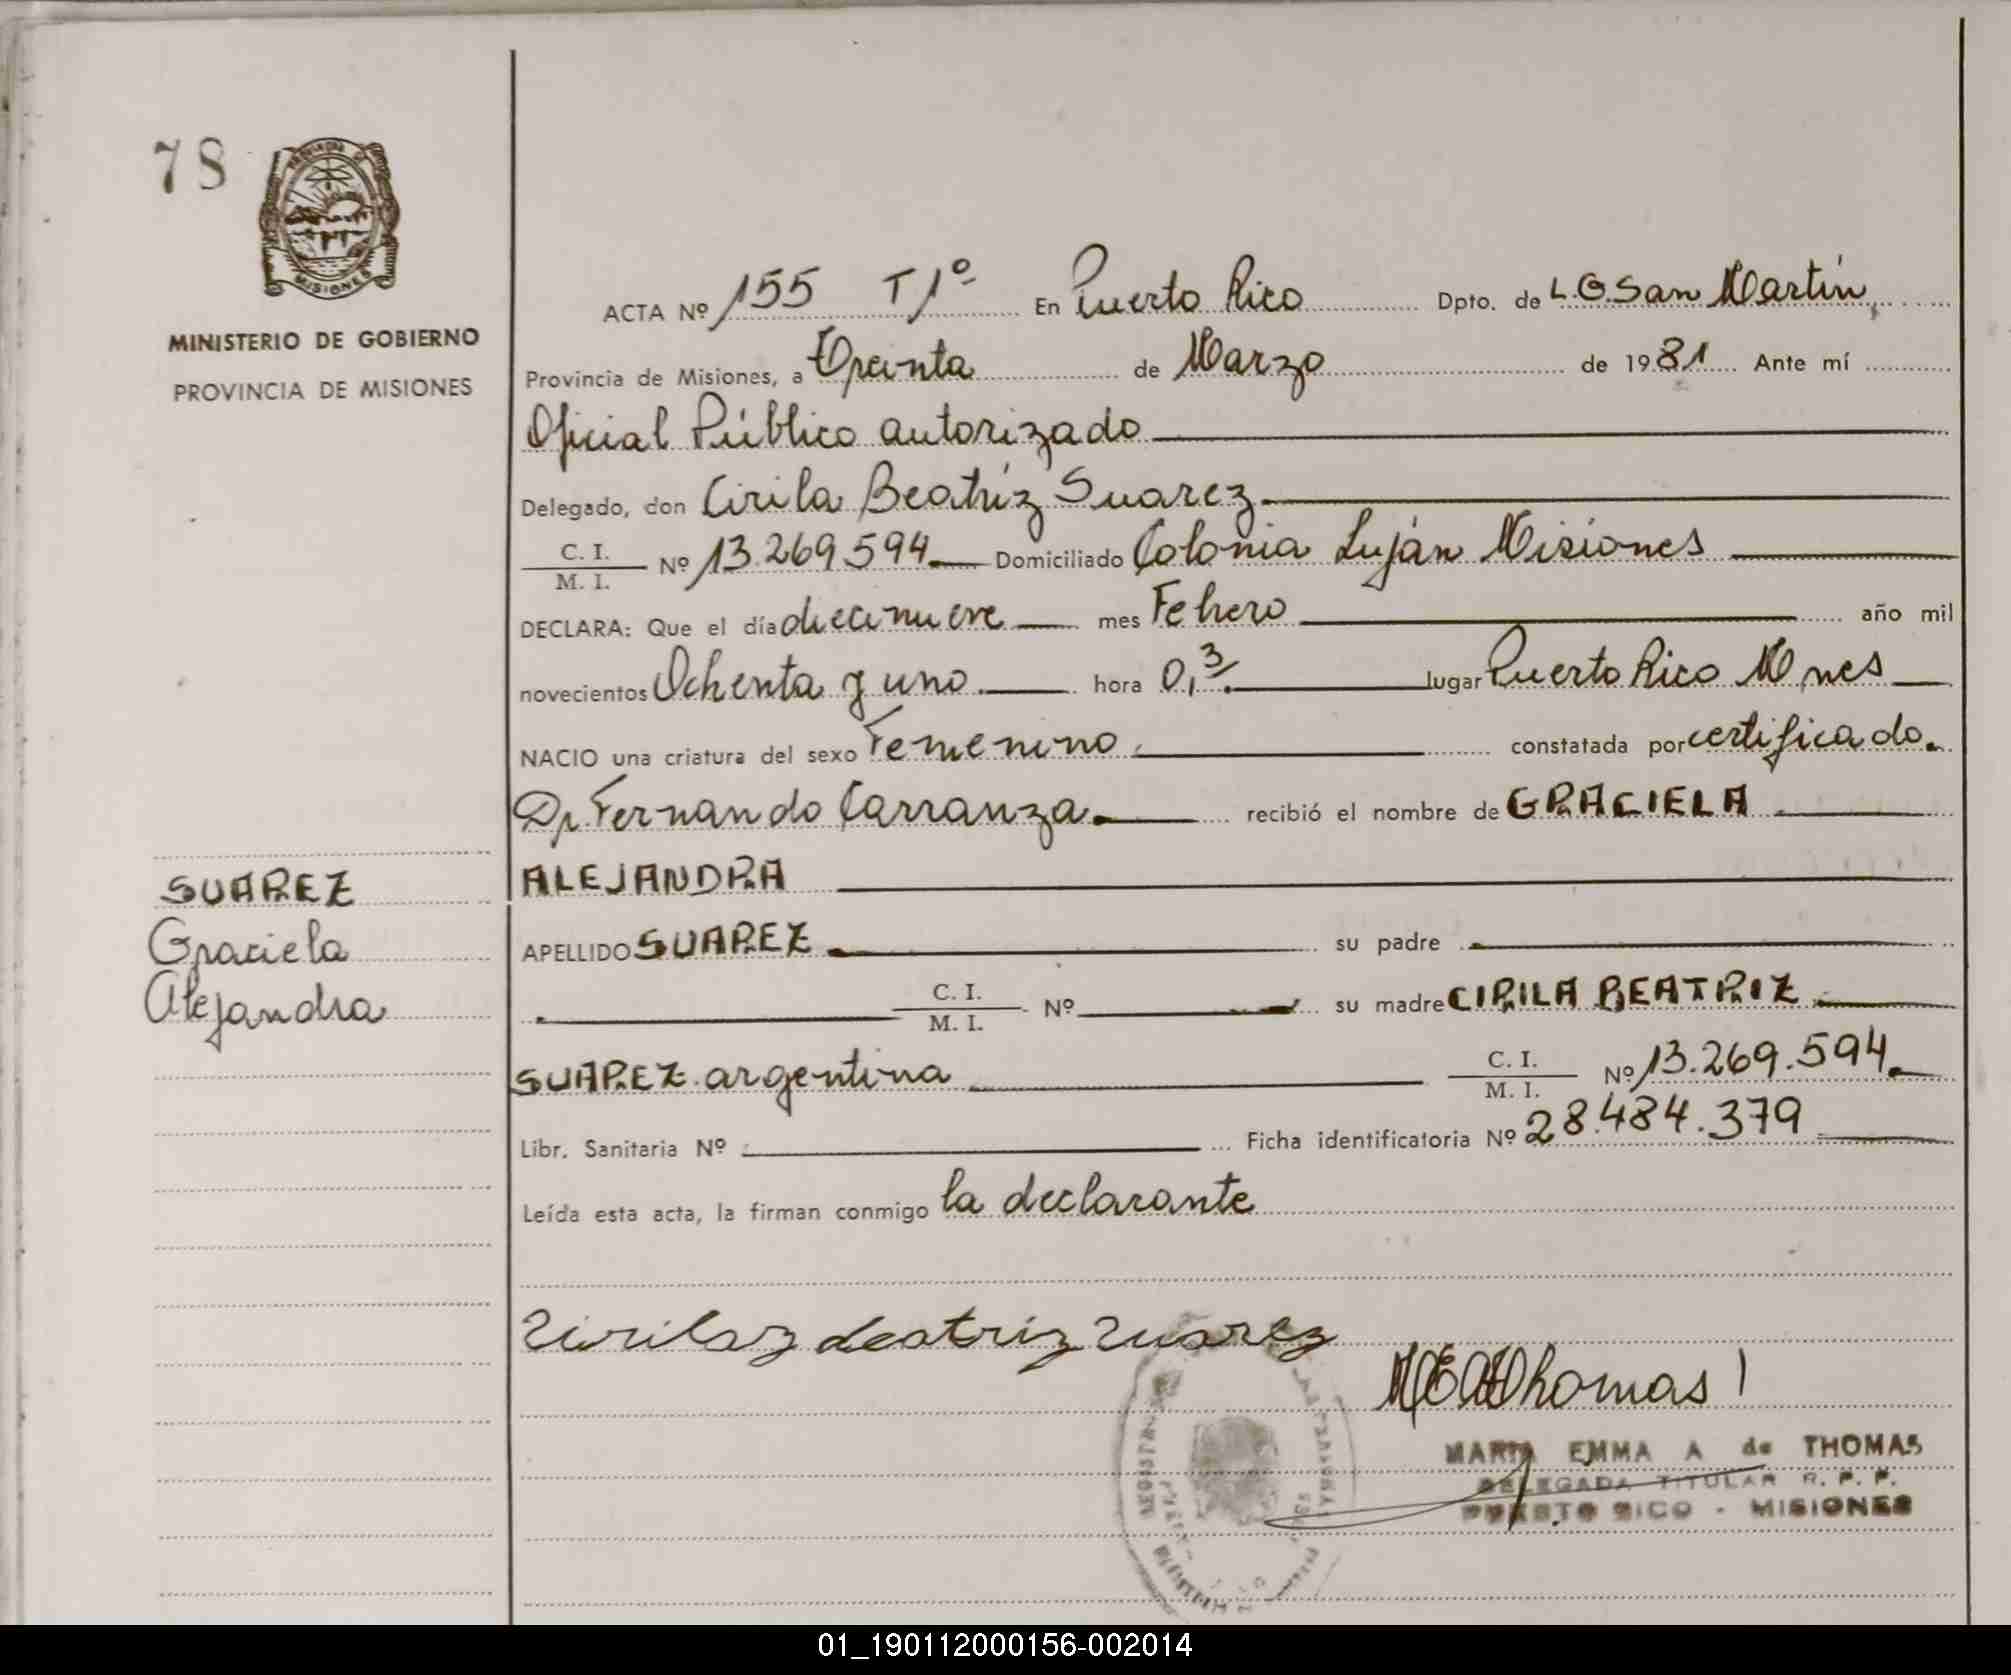 78
MISIONES
MINISTERIO DE GOBIERNO
PROVINCIA DE MISIONES
ACTA Nº 155 T1º En Puerto Rico Dpto. de L.G. San Martín,
Provincia de Misiones, a Treinta de Marzo de 1981 Ante mí
Oficial Público autorizado
Delegado, don Cirila Beatríz Suarez
C. I. / M. I. Nº 13.269.594 Domiciliado Colonia Luján Misiones
DECLARA: Que el día diecinueve mes Febrero año mil
novecientos Ochenta y uno hora 0,3 lugar Puerto Rico Mnes
NACIO una criatura del sexo Femenino constatada por certificado.
Dr. Fernando Carranza recibió el nombre de GRACIELA
ALEJANDRA
SUAREZ
Graciela
Alejandra
APELLIDO SUAREZ su padre
C. I. / M. I. Nº su madre CIRILA BEATRIZ
SUAREZ argentina C. I. / M. I. Nº 13.269.594
Libr. Sanitaria Nº Ficha identificatoria Nº 28.484.379
Leída esta acta, la firman conmigo la declarante
Thomas
MARIA EMMA A de THOMAS
DELEGADA TITULAR R. P. P.
PUERTO RICO - MISIONES
01_190112000156-002014